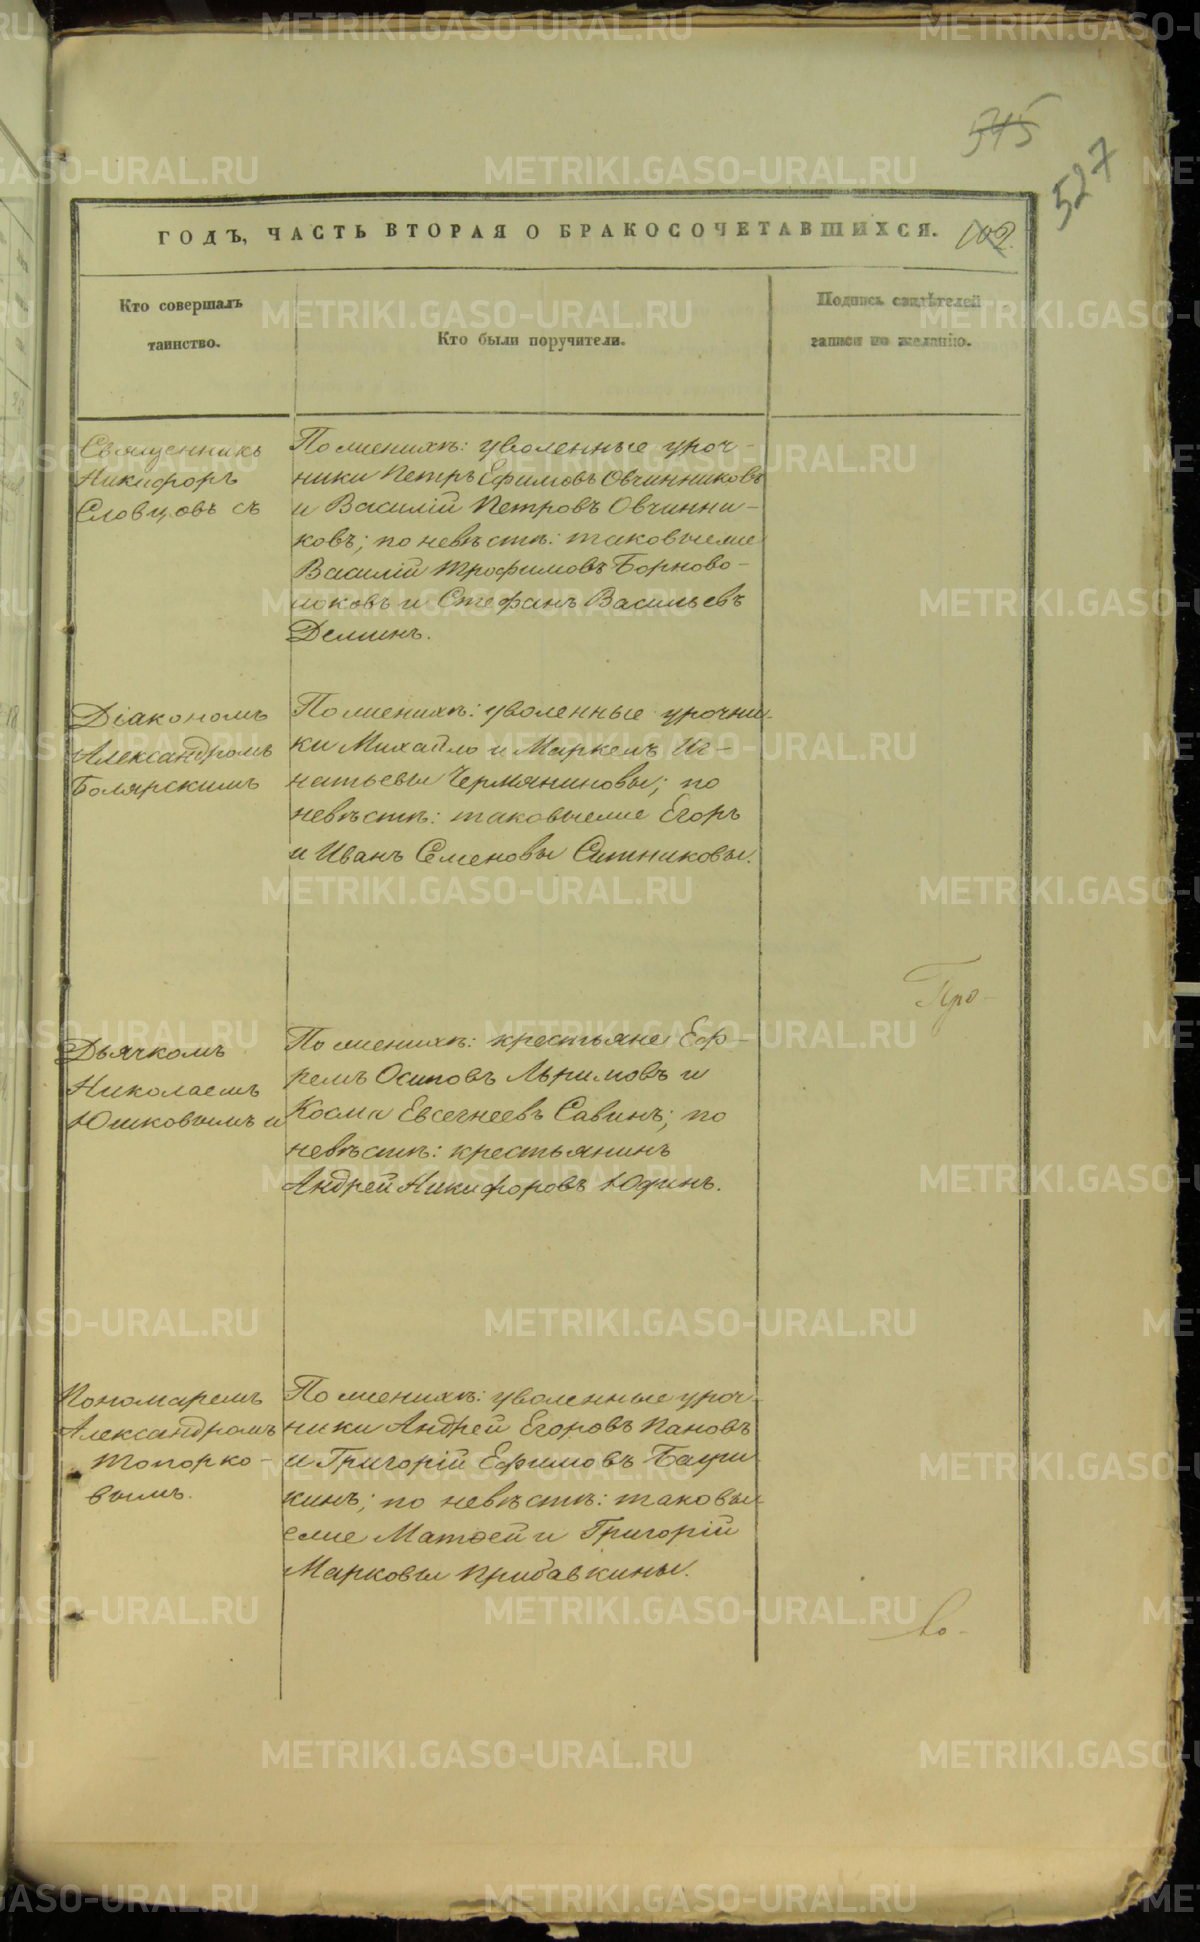 545
527
ГОДЪ, ЧАСТЬ ВТОРАЯ О БРАКОСОЧЕТАВШИХСЯ. 102.
Кто совершалъ
таинство.
Кто были поручители.
Подпись свидѣтелей
записи по желанію.
Священникъ
Никифоръ
Словцовъ съ
По женихѣ: уволенные уроч-
ники Петръ Ефимовъ Овчинниковъ
и Василій Петровъ Овчинни-
ковъ; по невѣстѣ: таковыеже
Василій Трофимовъ Борново-
локовъ и Стефанъ Васильевъ
Деминъ.
Діакономъ
Александромъ
Болярскимъ
По женихѣ: уволенные урочни-
ки Михайло и Маркелъ Иг-
натьевы Чермяниновы; по
невѣстѣ: таковыеже Егоръ
и Иванъ Семеновы Ситниковы.
Про-
Дьячкомъ
Николаемъ
Юшковымъ и
По женихѣ: крестьяне Еф-
ремъ Осиповъ и
Косма Евсегнеевъ Савинъ; по
невѣстѣ: крестьянинъ
Андрей Никифоровъ Юфинъ.
Пономаремъ
Александромъ
Топорко-
вымъ.
По женихѣ: уволенные уроч-
ники Андрей Егоровъ Пановъ
и Григорій Ефимовъ
кинъ; по невѣстѣ: таковы
еже Матѳей и Григорій
Марковы Прибавкины.
METRIKI.GASO-URAL.RU